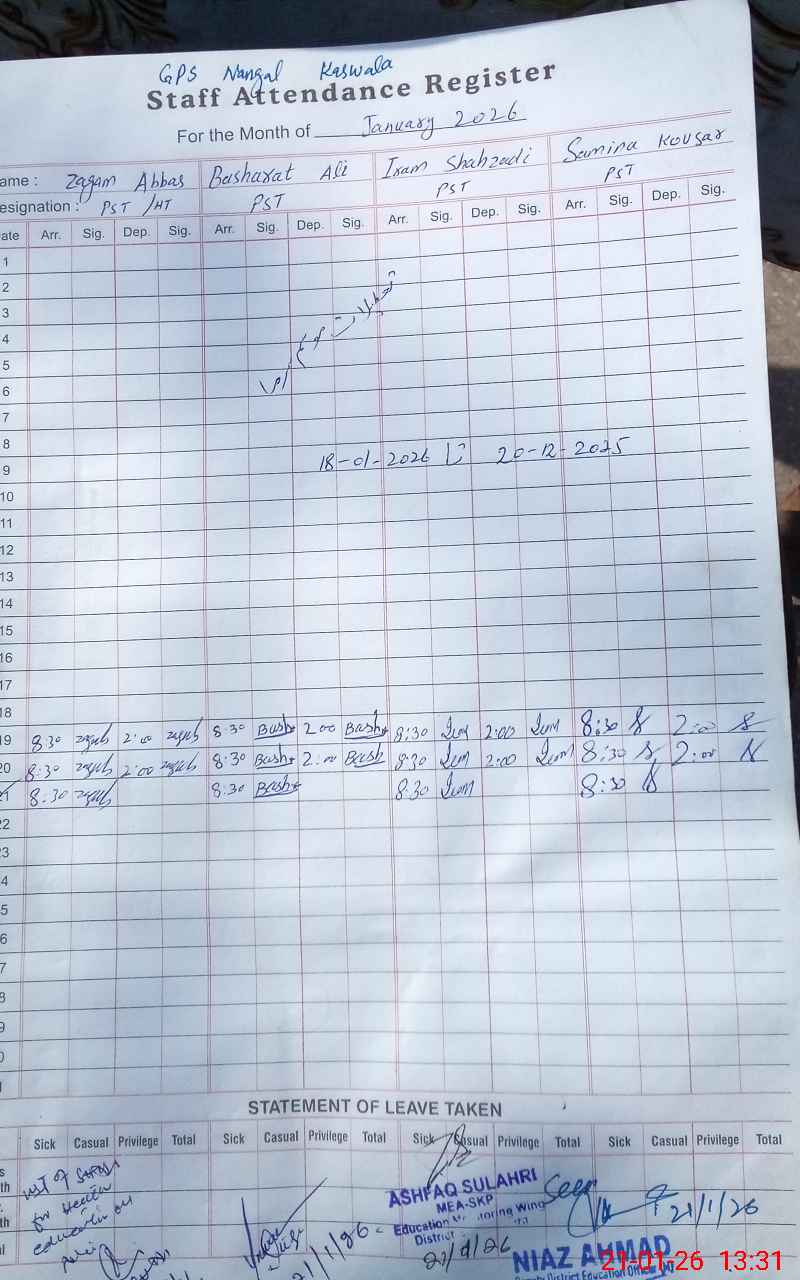 GPS Nangal Kaswala
Staff Attendance Register
For the Month of January 2026
ame : Zagam Abbas Basharat Ali Iram Shahzadi Samina Kousar
esignation : PST / HT PST PST PST
ate Arr. Sig. Dep. Sig. Arr. Sig. Dep. Sig. Arr. Sig. Dep. Sig. Arr. Sig. Dep. Sig.
1
2
3
4
5
6
7
8
18-01-2026 تا 20-12-2025
9
10
11
12
13
14
15
16
17
18
19 8:30 2:00 8:30 Bash 2:00 Bash 8:30 2:00 8:30 2:00
20 8:30 2:00 8:30 Bash 2:00 Bash 8:30 2:00 8:30 2:00
21 8:30 8:30 Bash 8:30 8:30
22
3
4
5
6
7
8
9
0
STATEMENT OF LEAVE TAKEN
Sick Casual Privilege Total Sick Casual Privilege Total Sick Casual Privilege Total Sick Casual Privilege Total
for Health
education
ASHFAQ SULAHRI
MEA-SKP
Education Monitoring Wing
District
21/1/26
Seen
21/1/26
NIAZ AHMAD
Deputy District Education Officer
21-01-26 13:31